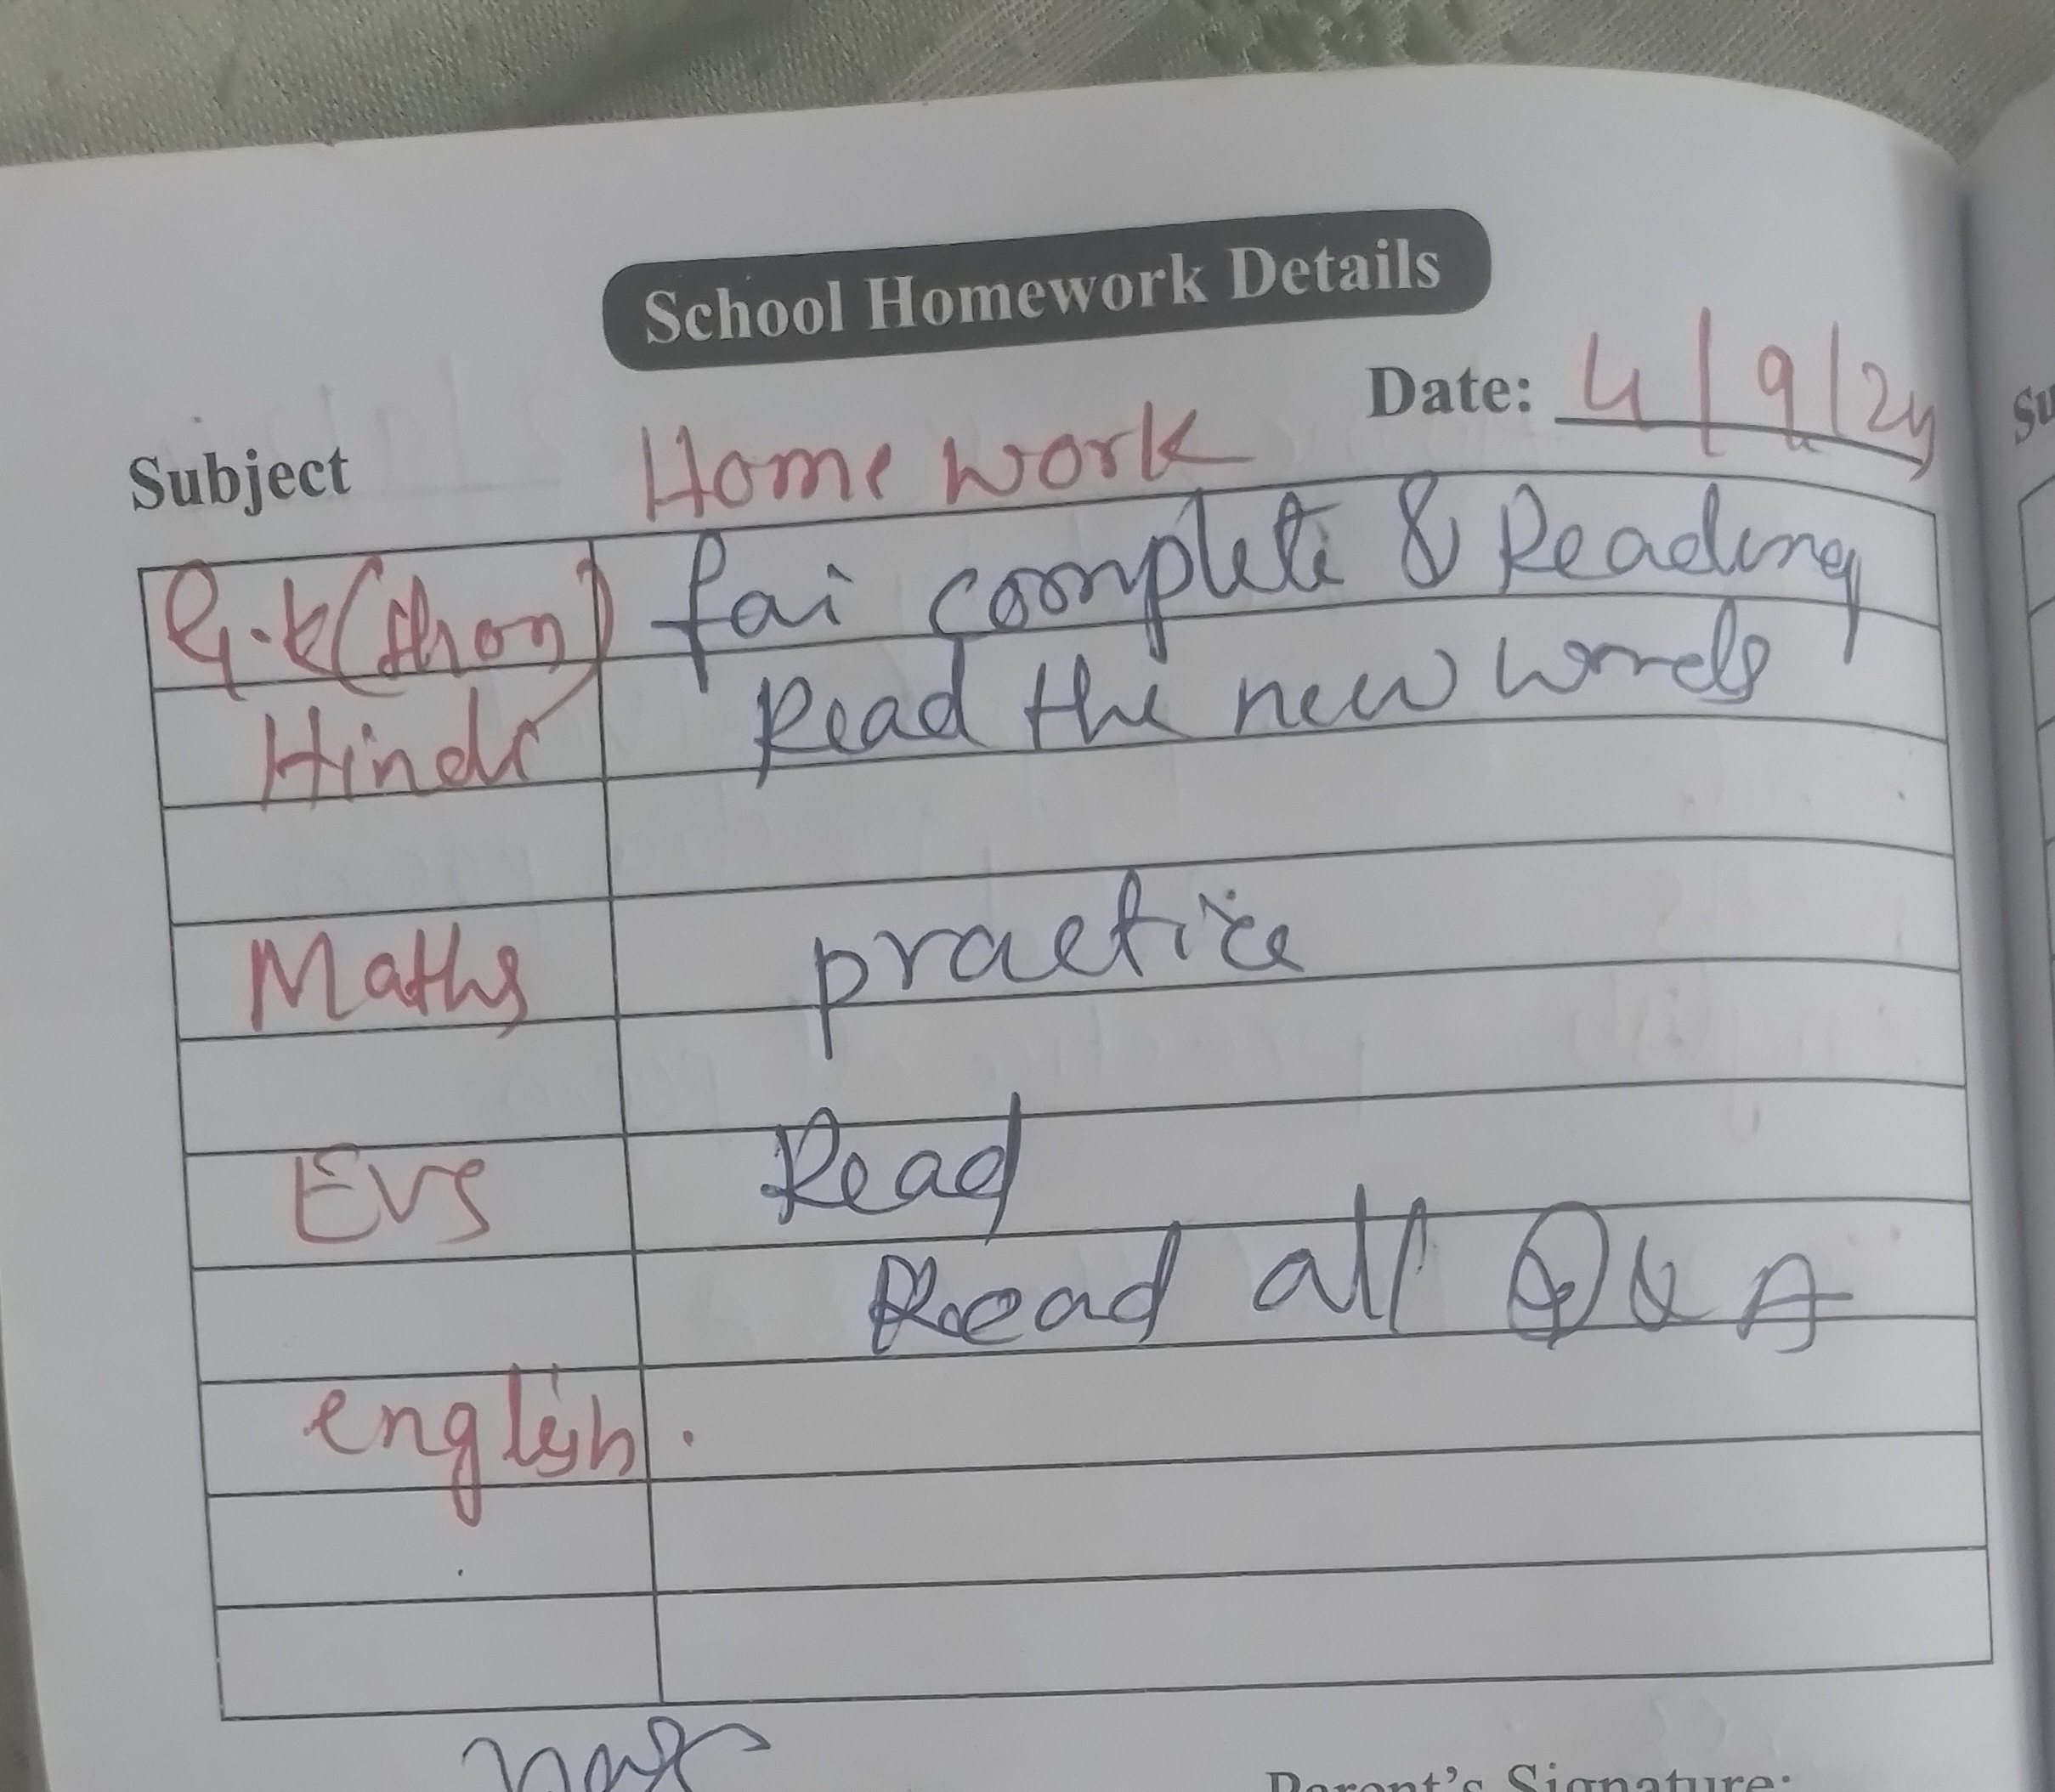 School Homework Details
Date: 4/9/24
Subject Home work
G.k(thon) fai complete & Reading
Hindi Read the new words
Maths practice
EVS Read
Read all Q & A
english.
Parent's Signature: